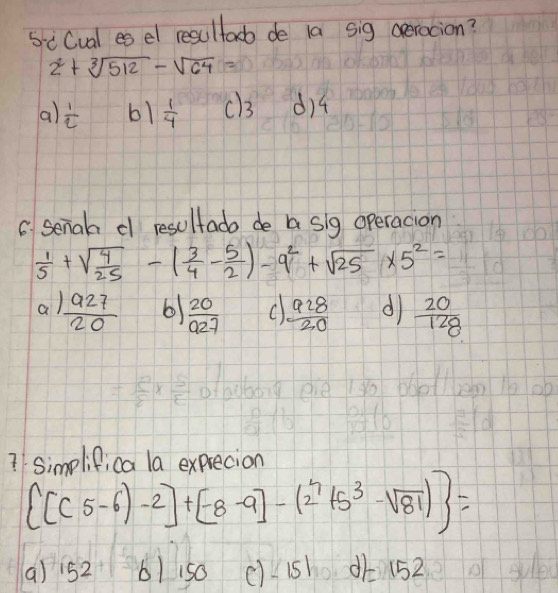 5-¿Cual es el resultado de la sig operocion?
2² + ∛512 - √64 =
a) 1/2 b) 1/4 c) 3 d) 4
6. señala el resultado de la sig operacion
1/5 + √4/25 - (3/4 - 5/2) - 9² + √25 x 5² =
a) 927/20 b) 20/927 c) -928/20 d) 20/128
7. Simplifica la exprecion
{[(5-6)-2]+[-8-9]-(2⁴+5³-√81)}=
a) 152 b) 150 c) -151 d) -152